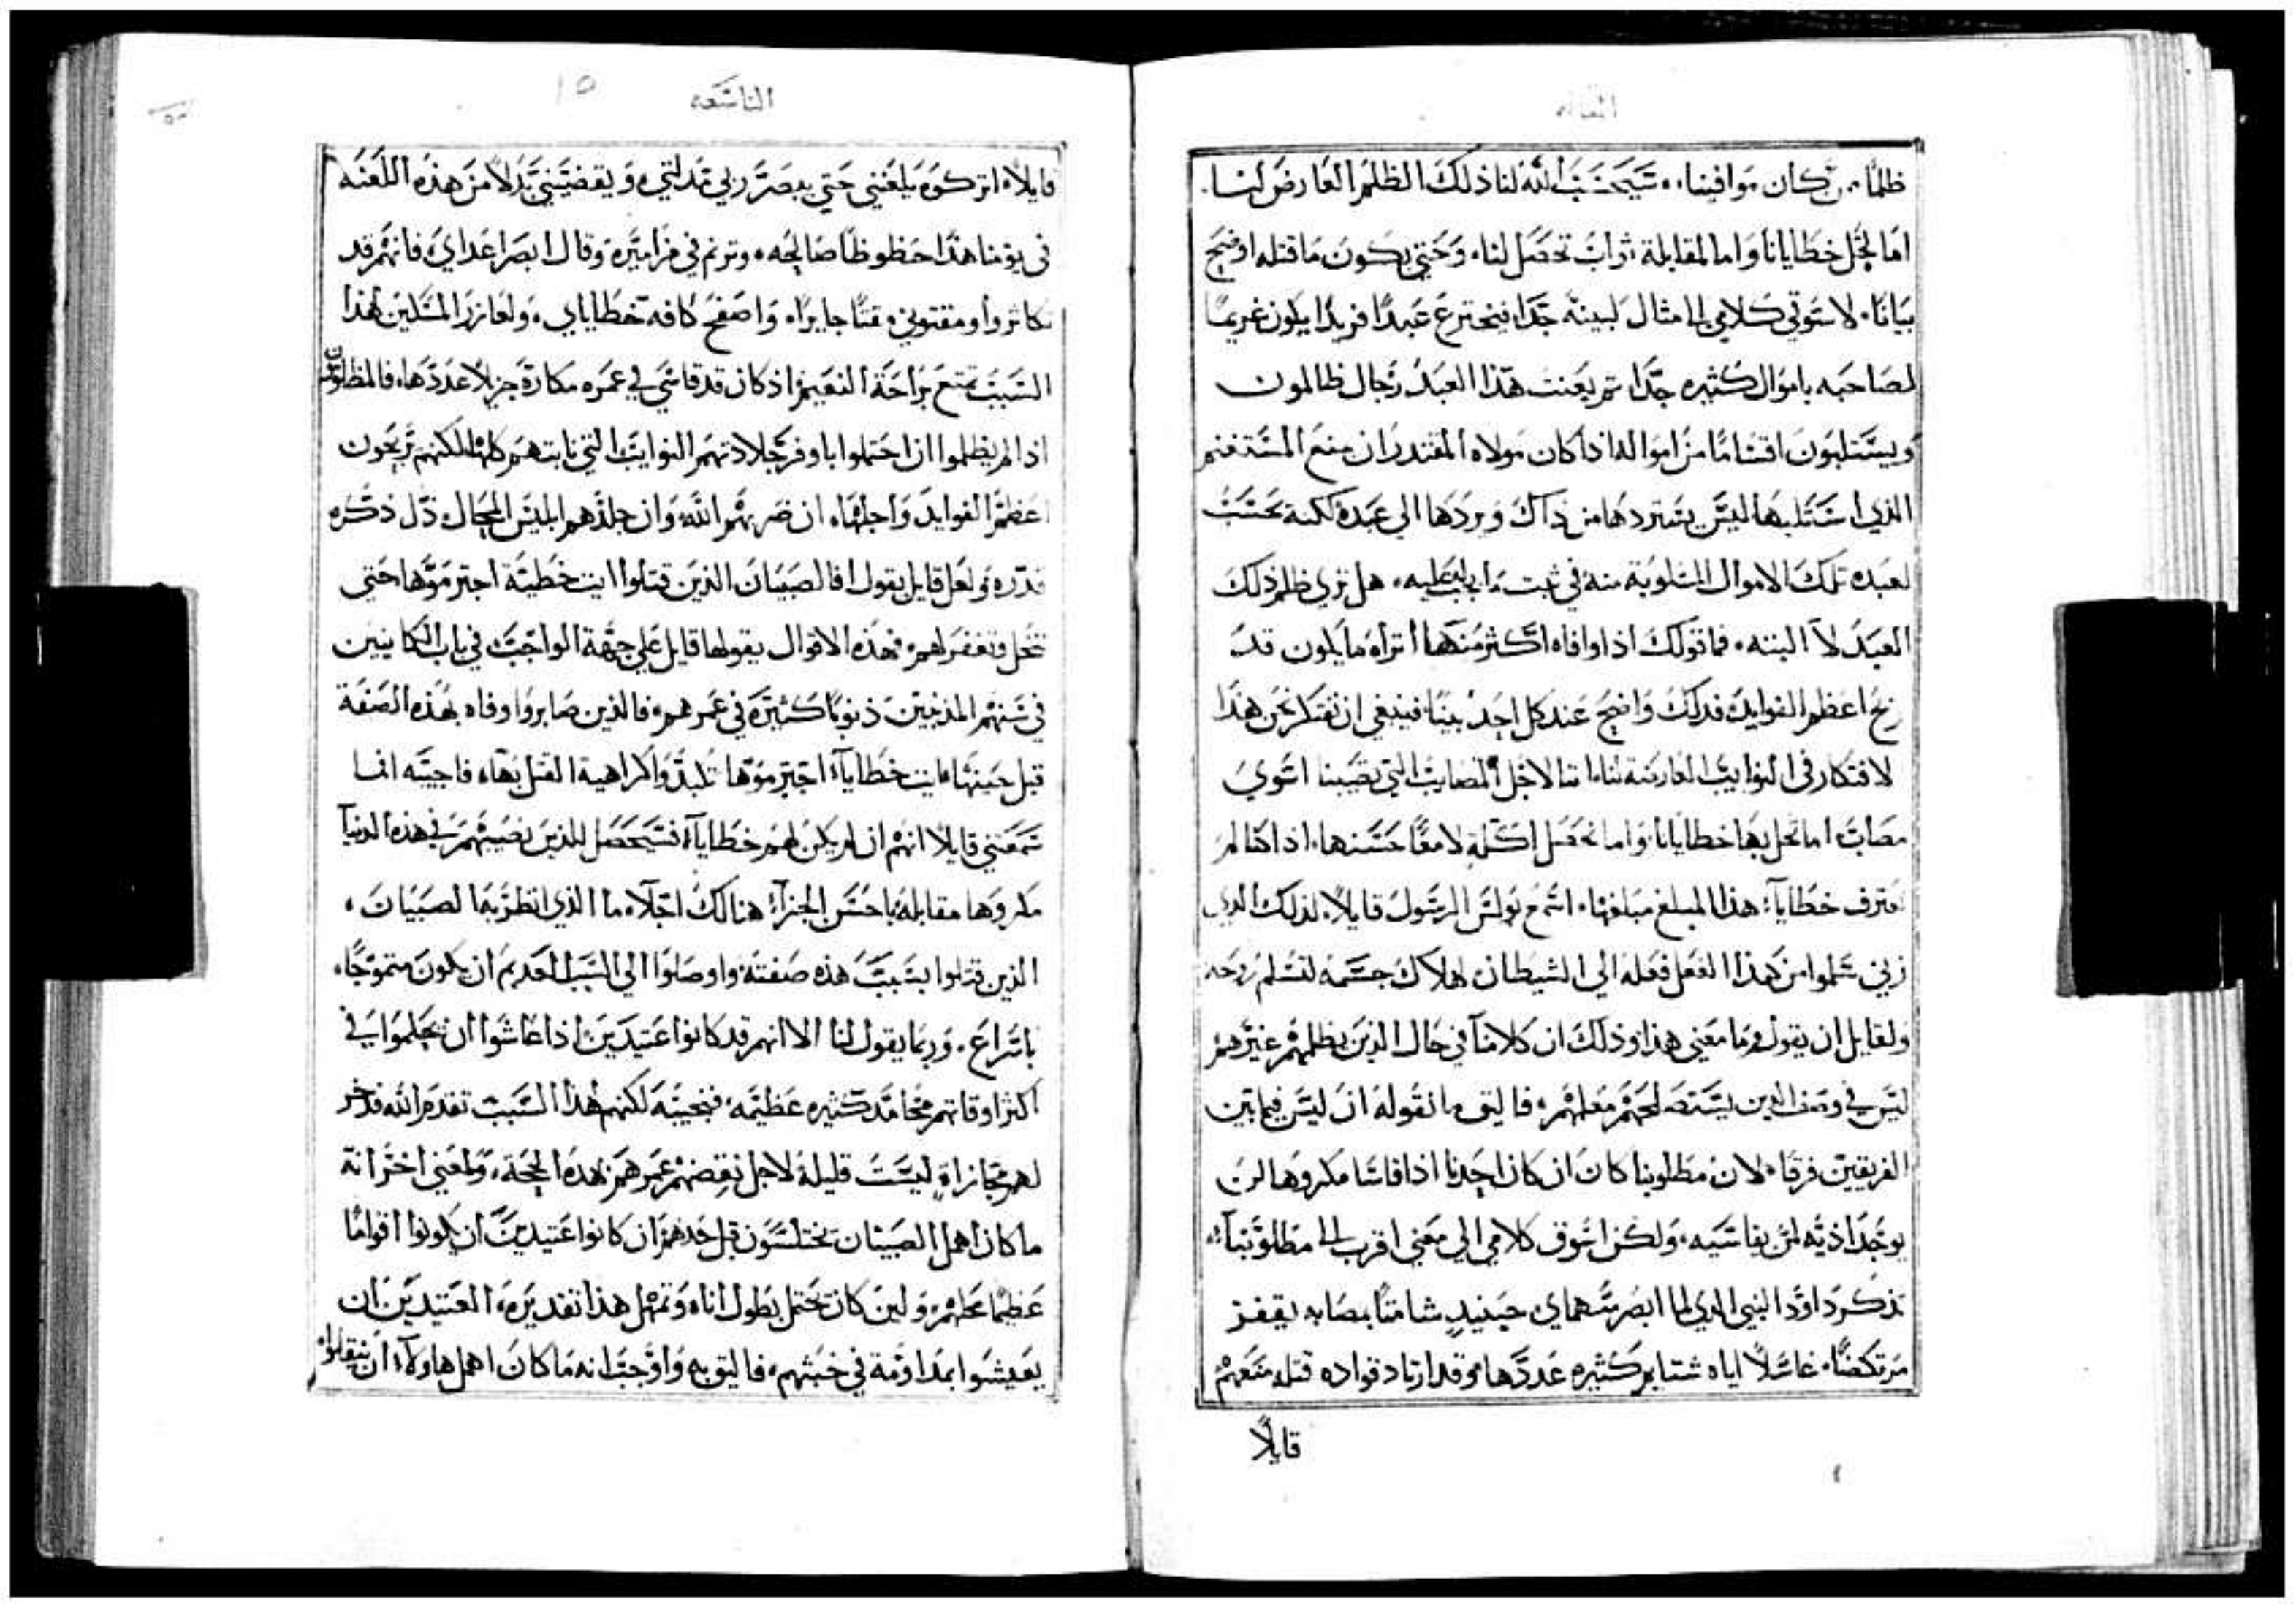 المقاله
ظلمًا من كان موافينا، سيحسب الله لنا ذلك الظلم العارض لنا.
اما لحل خطايانا واما لمقابلة ثواب تحصل لنا، وحتي يكون ما قتله اوضح
بيانًا، لاسوقن كلامي الي مثال لبينه جدا، فنخترع عبدا فريدا يكون غريمًا
لصاحبه باموال كثيره جدا تم يعنت هذا العبد رجال ظالمون
ويستلبون اقسامًا من امواله اذا كان مولاه المقتدر ان يمنع المستغنم
الذي استلبها ليس يستردها من ذاك ويردها الي عبده لكنه يحتسب
لعبده تلك الاموال المسلوبة منه في ثبت ما يجب عليه، هل تري ظلم ذلك
العبد لا البته، فما قولك اذا وافاه اكثر منها اتراه ما يكون قد
ربح اعظم الفوايد فذلك واضح عند كل احد بينا فينبغي ان نفتكر نحن هذا
لافتكار في النوايب العارضة لنا، اننا لاجل المصايب التي تصيبنا اسوي
مصاب اما نحل بها خطايانا، واما نحصل اكلة لامعًا حسنها، اذا كنا لم
نقترف خطايا، هذا المبلغ مبلغها، اسمع بولس الرسول قايلاً، لذلك الذي
زني سلموا من هذا الفعل فعله الي الشيطان لهلاك جسمه لتسلم روحه
ولقايل ان يقول وما معني هذا وذلك ان كلامنا في حال الذين يظلمهم غيرهم
ليس في وصف الذين يستصلحهم معلمهم، فاليق ما نقوله ان ليس فيما بين
الفريقين فرقا، لان مطلوبنا كان ان كان احدنا اذا قاسا مكروها لن
يوجد اذيه لمن يقاسيه، ولكن اسوق كلامي الي معني اقرب الي مطلوبنا،
تذكر داوود النبي الذي لما ابصر سماي حينيذ شامتًا بمصابه يقفز
مرتكضًا، غاسلاً اياه شتايم كثيره عددها، وقد ارتاد قواده قتله منعهم
قايلاً
التاسعه
١٥
قايلاً، اتركوه يلعنني حتي يبصر ربي تمدلتي، ويقضيني بدلاً من هذه اللعنه
في يومنا هذا حظوظًا صالحه، وترنم في مزاميره وقال ابصر اعداي فانهم قد
تكاثروا ومقتوني مقتًا جايرا، واصفح كافه خطاياي، ولعازر المسكين لهذا
السبب تمتع براحة النعيم، اذ كان قد قاسي في عمره مكارة جزيلا عددها، فالمظلومون
اذا لم يظلموا ان احتملوا باوفر جلادتهم النوايب التي نابتهم كلها، لكنهم يربحون
اعظم الفوايد واجلها، ان ضربهم الله وان جلدهم ابليس المحال ذل ذكره
قدره، ولعل قايل يقول افالصبيان الذين قتلوا ايت خطية اجترموها حتي
تحل وتغفر لهم، فهذه الاقوال يقولها قايل علي جهة الواجب في باب الكاينين
في سنهم المذنبين ذنوبًا كثيرة في عمرهم، فالذين صابروا وفاه بهذه الصفة
قبل حينها، ايت خطايا اجترموها تبدوا كراهية القتل بها، فاجيبه انما
سمعتني قايلاً انهم ان لم يكن لهم خطايا، فسيحصل للذين نصيبهم في هذه الدنيا
مكروها مقابلة باحسن الجزا، هنالك اجلا، ما الذي انظر بها لصبيان،
الذين قتلوا بسبب هذه صفته واوصلوا الي السبب العديم ان يكون متموجًا،
باسراع، وربما يقول لنا الا انهم قد كانوا عتيدين اذا عاشوا ان يحكموا في
اكثر اوقاتهم محامد كثيره عظيمه، فنجيبه لكنهم لهذا السبب تقدم الله فذخر
لهم مجازاة ليست قليلة لاجل نقضهم عمرهم بهذه الحجة، ولمعني اخر انه
ما كان اهمل الصبيان يختلسون قبل حدهم ان كانوا عتيدين ان يكونوا اقوامًا
عظيمًا محلهم، ولين كان يحتمل بطول اناه وتمهل هذا تقديره، العتيدين ان
يعيشوا بمداومة في خبثهم، فاليق به واوجب انه ما كان اهمل هاولاء ان ينقلوا